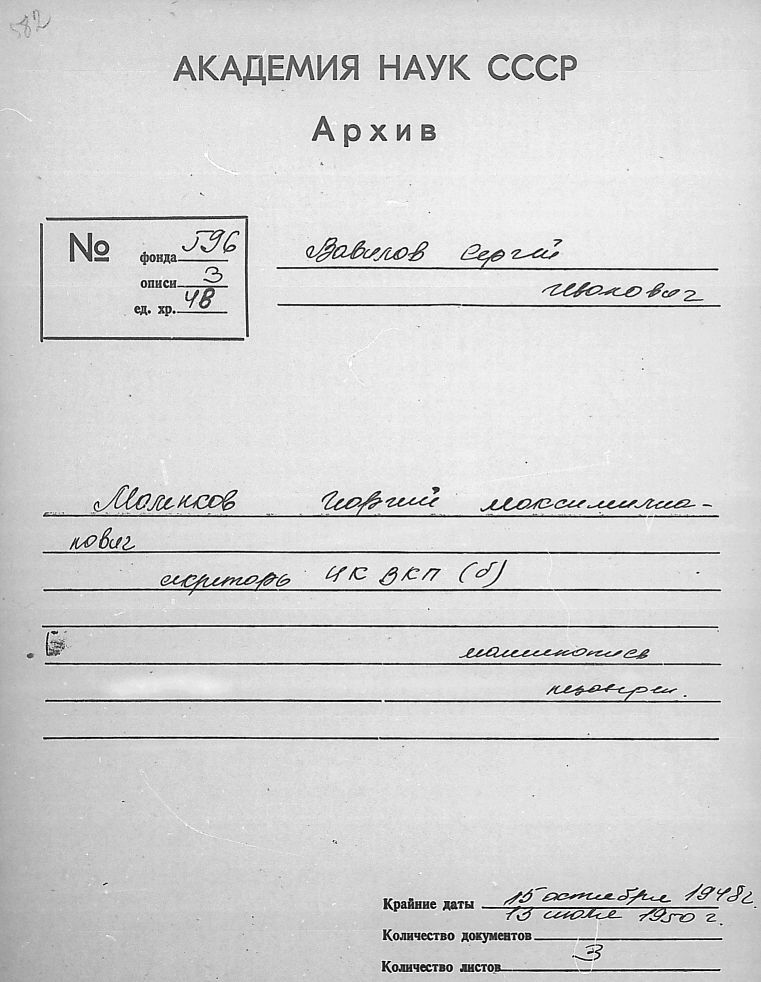 582
АКАДЕМИЯ НАУК СССР
Архив
№
фонда 596
описи 3
ед. хр. 48
Вавилов Сергей
Иванович
Маленков Георгий Максимилиа-
нович
секретарь ЦК ВКП(б)
машинопись
незаверен.
Крайние даты 15 октября 1948 г.
13 июля 1950 г.
Количество документов
Количество листов 3